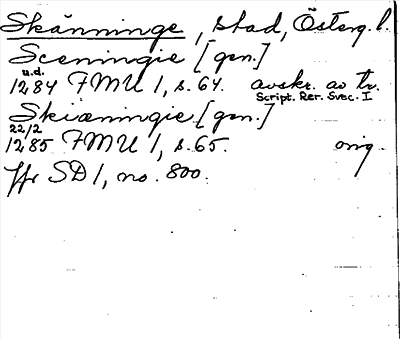 Skänninge, stad, Österg. l.
Sceningie [gen.]
u.d.
1284 FMU 1, s. 64. avskr. av tr.
Script. Rer. Svec. I
Skiæningie [gen.]
22/2
1285 FMU 1, s. 65. orig.
jfr SD 1, no. 800.